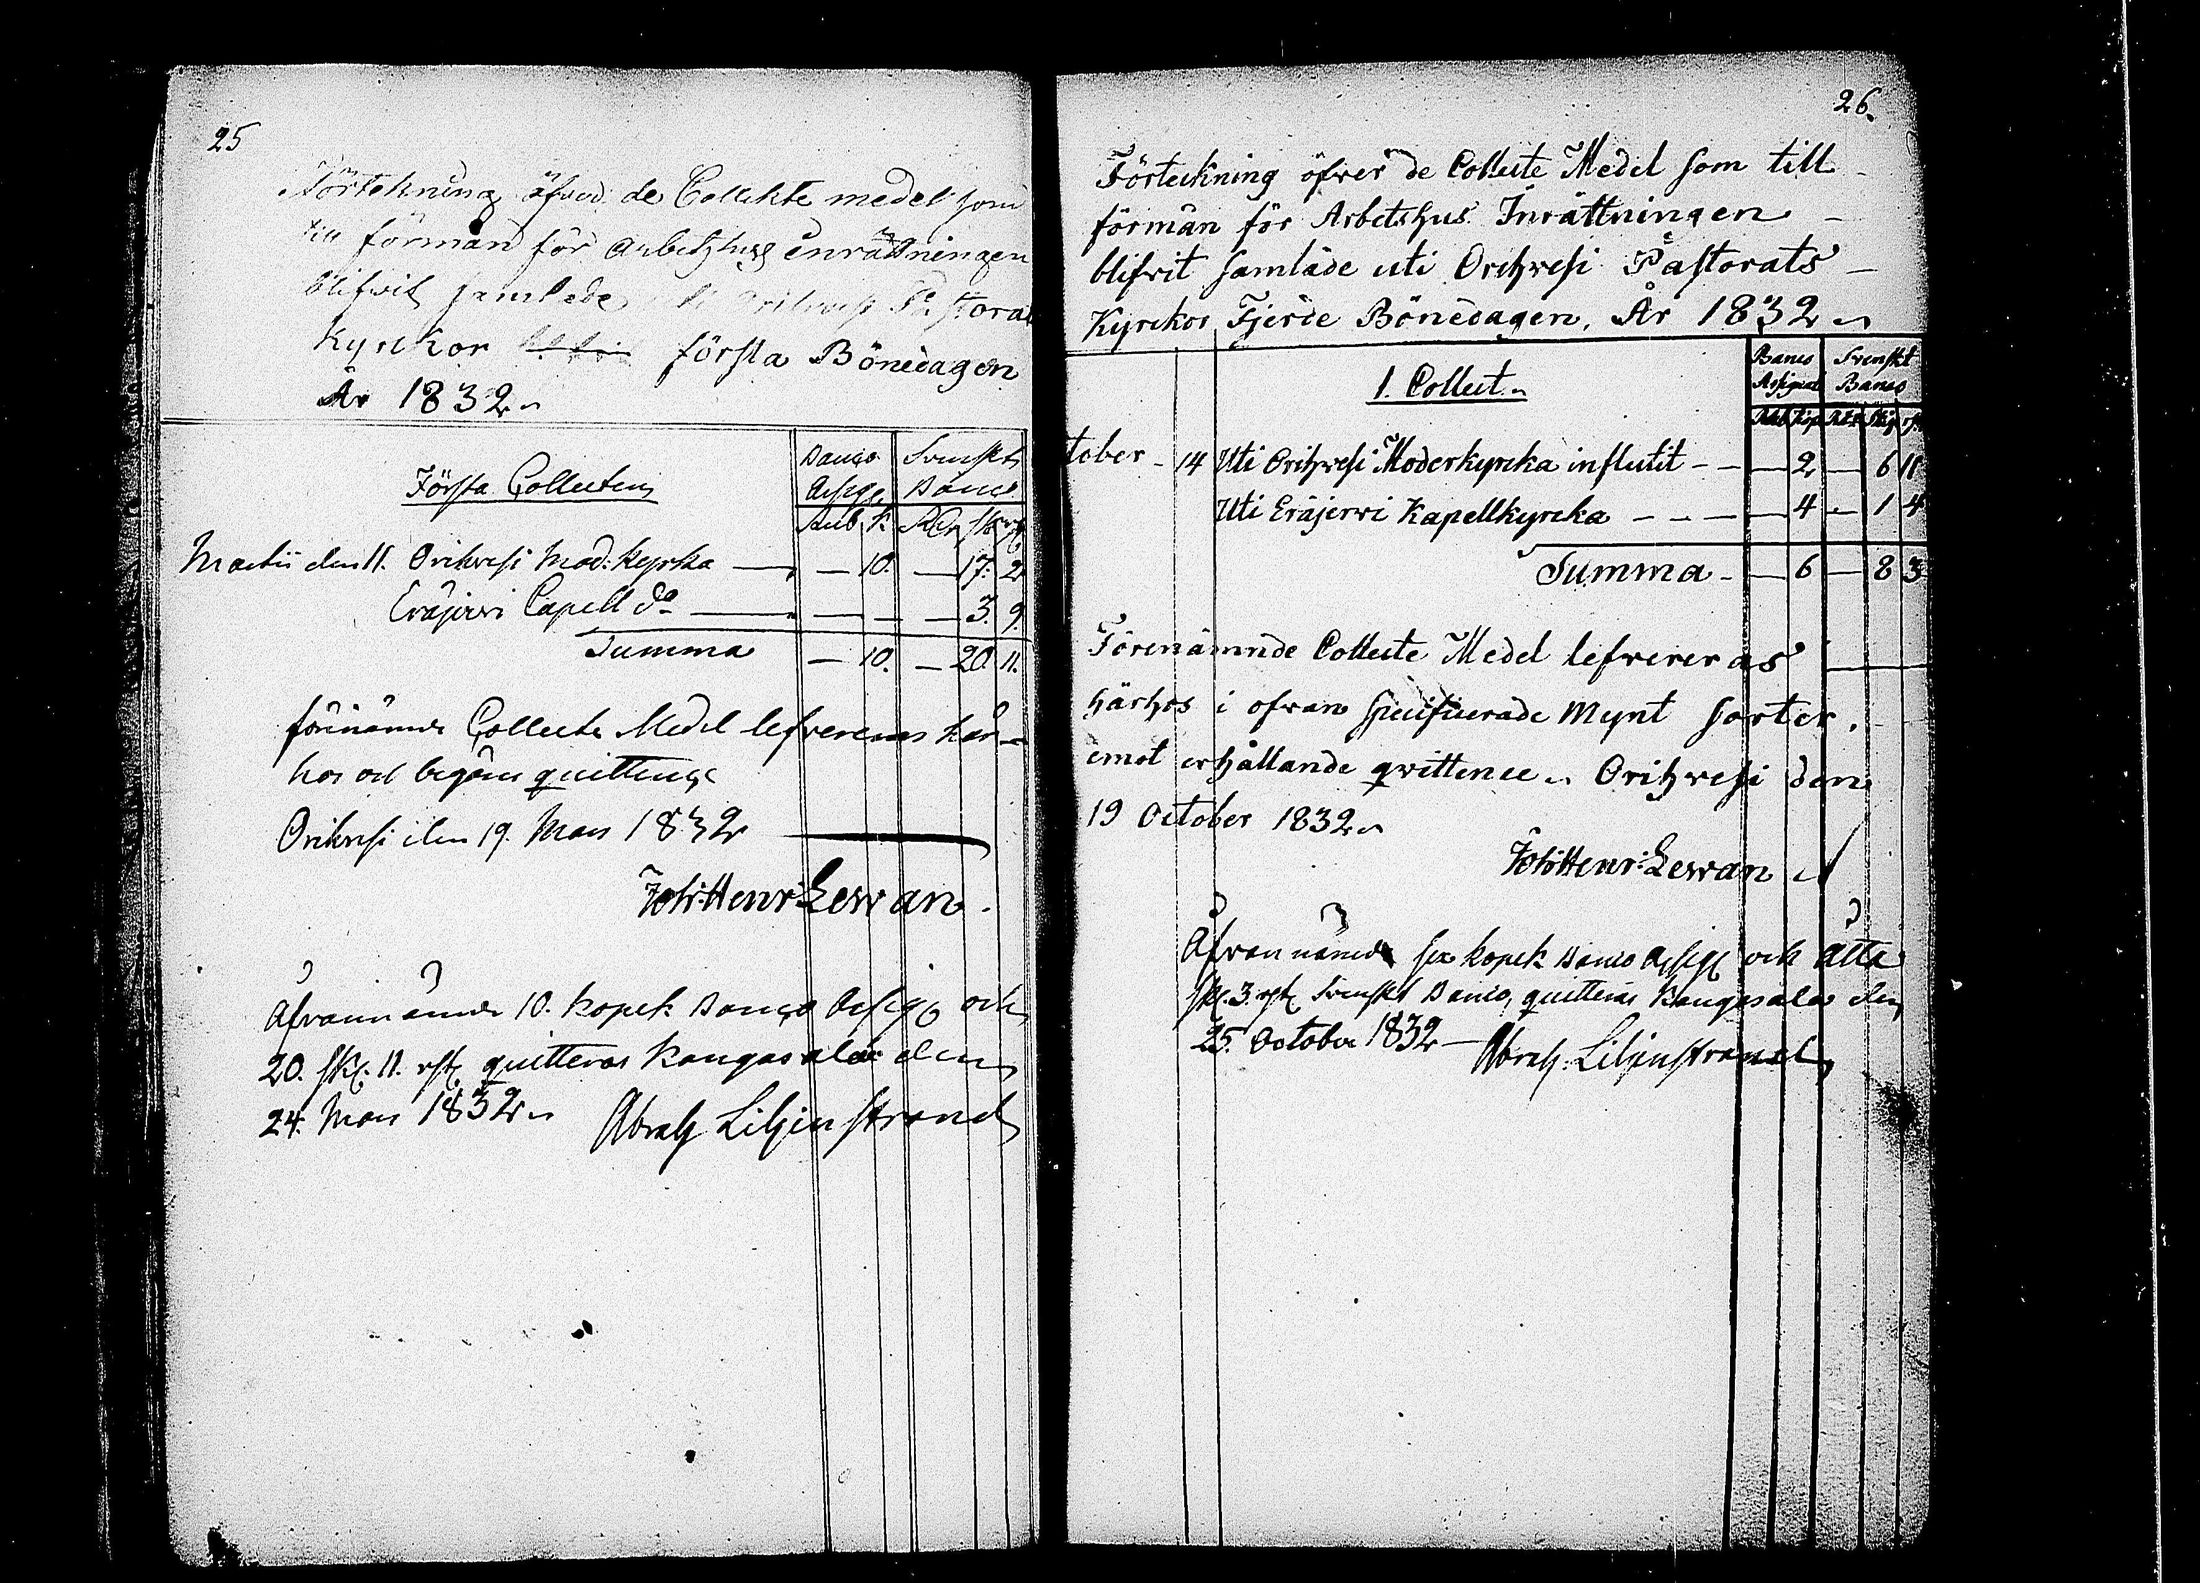 25
Förtekning öfver de Collekte medel som
till förmån för arbetzhus inrättningen
blifvit samlade Orihvesi Pastorat
Kyrckor första Bönedagen
År 1832
Första Collecten
Banco Assig:
Svenskt Banco
Rub. k. RDr sk. rst
Martii den 11. Orihvesi Mod: Kyrka — — 10. — 17. 2
Eräjervi Capell do — — — — 3. 9.
Summa — 10. — 20. 11.
förenämnde Collecte Medel lefvereras här-
hos och begäres quittence
Orihvesi den 19. Mars 1832
Joh: Henr: Lewan.
Åfvannämnde 10. kopek Banco Assig och
20. sk. 11. rst. quitteras Kangasala den
24. Mars 1832
Abrah Liljenstrand
26.
Förteckning öfver de Collecte Medel som till
förmån för Arbetshus Inrättningen
blifvit samlade uti Orihvesi Pastorats
Kyrckor Fjerde Bönedagen, År 1832
1. Collect.
Banco Assignat
Svenskt Banco
Rub Kop RDr Skg rst
tober - 14 Uti Orihvesi Moderkyrcka influtit - - — 2 — 6 11
Uti Eräjervi Kapellkyrcka - - - — 4 — 1 4
Summa - — 6 — 8 3
Förenämnde Collecte Medel lefvereras
härhos i ofvan specificerade Mynt sorter,
emot erhållande qvittence Orihvesi den
19 October 1832
Joh: Henr: Lewan
Åfvannämnde sex kopek Banco Assig och åtta
sk. 3. rst. Svenskt Banco, quitteras Kangasala den
25. October 1832 — Abrah: Liljenstrand